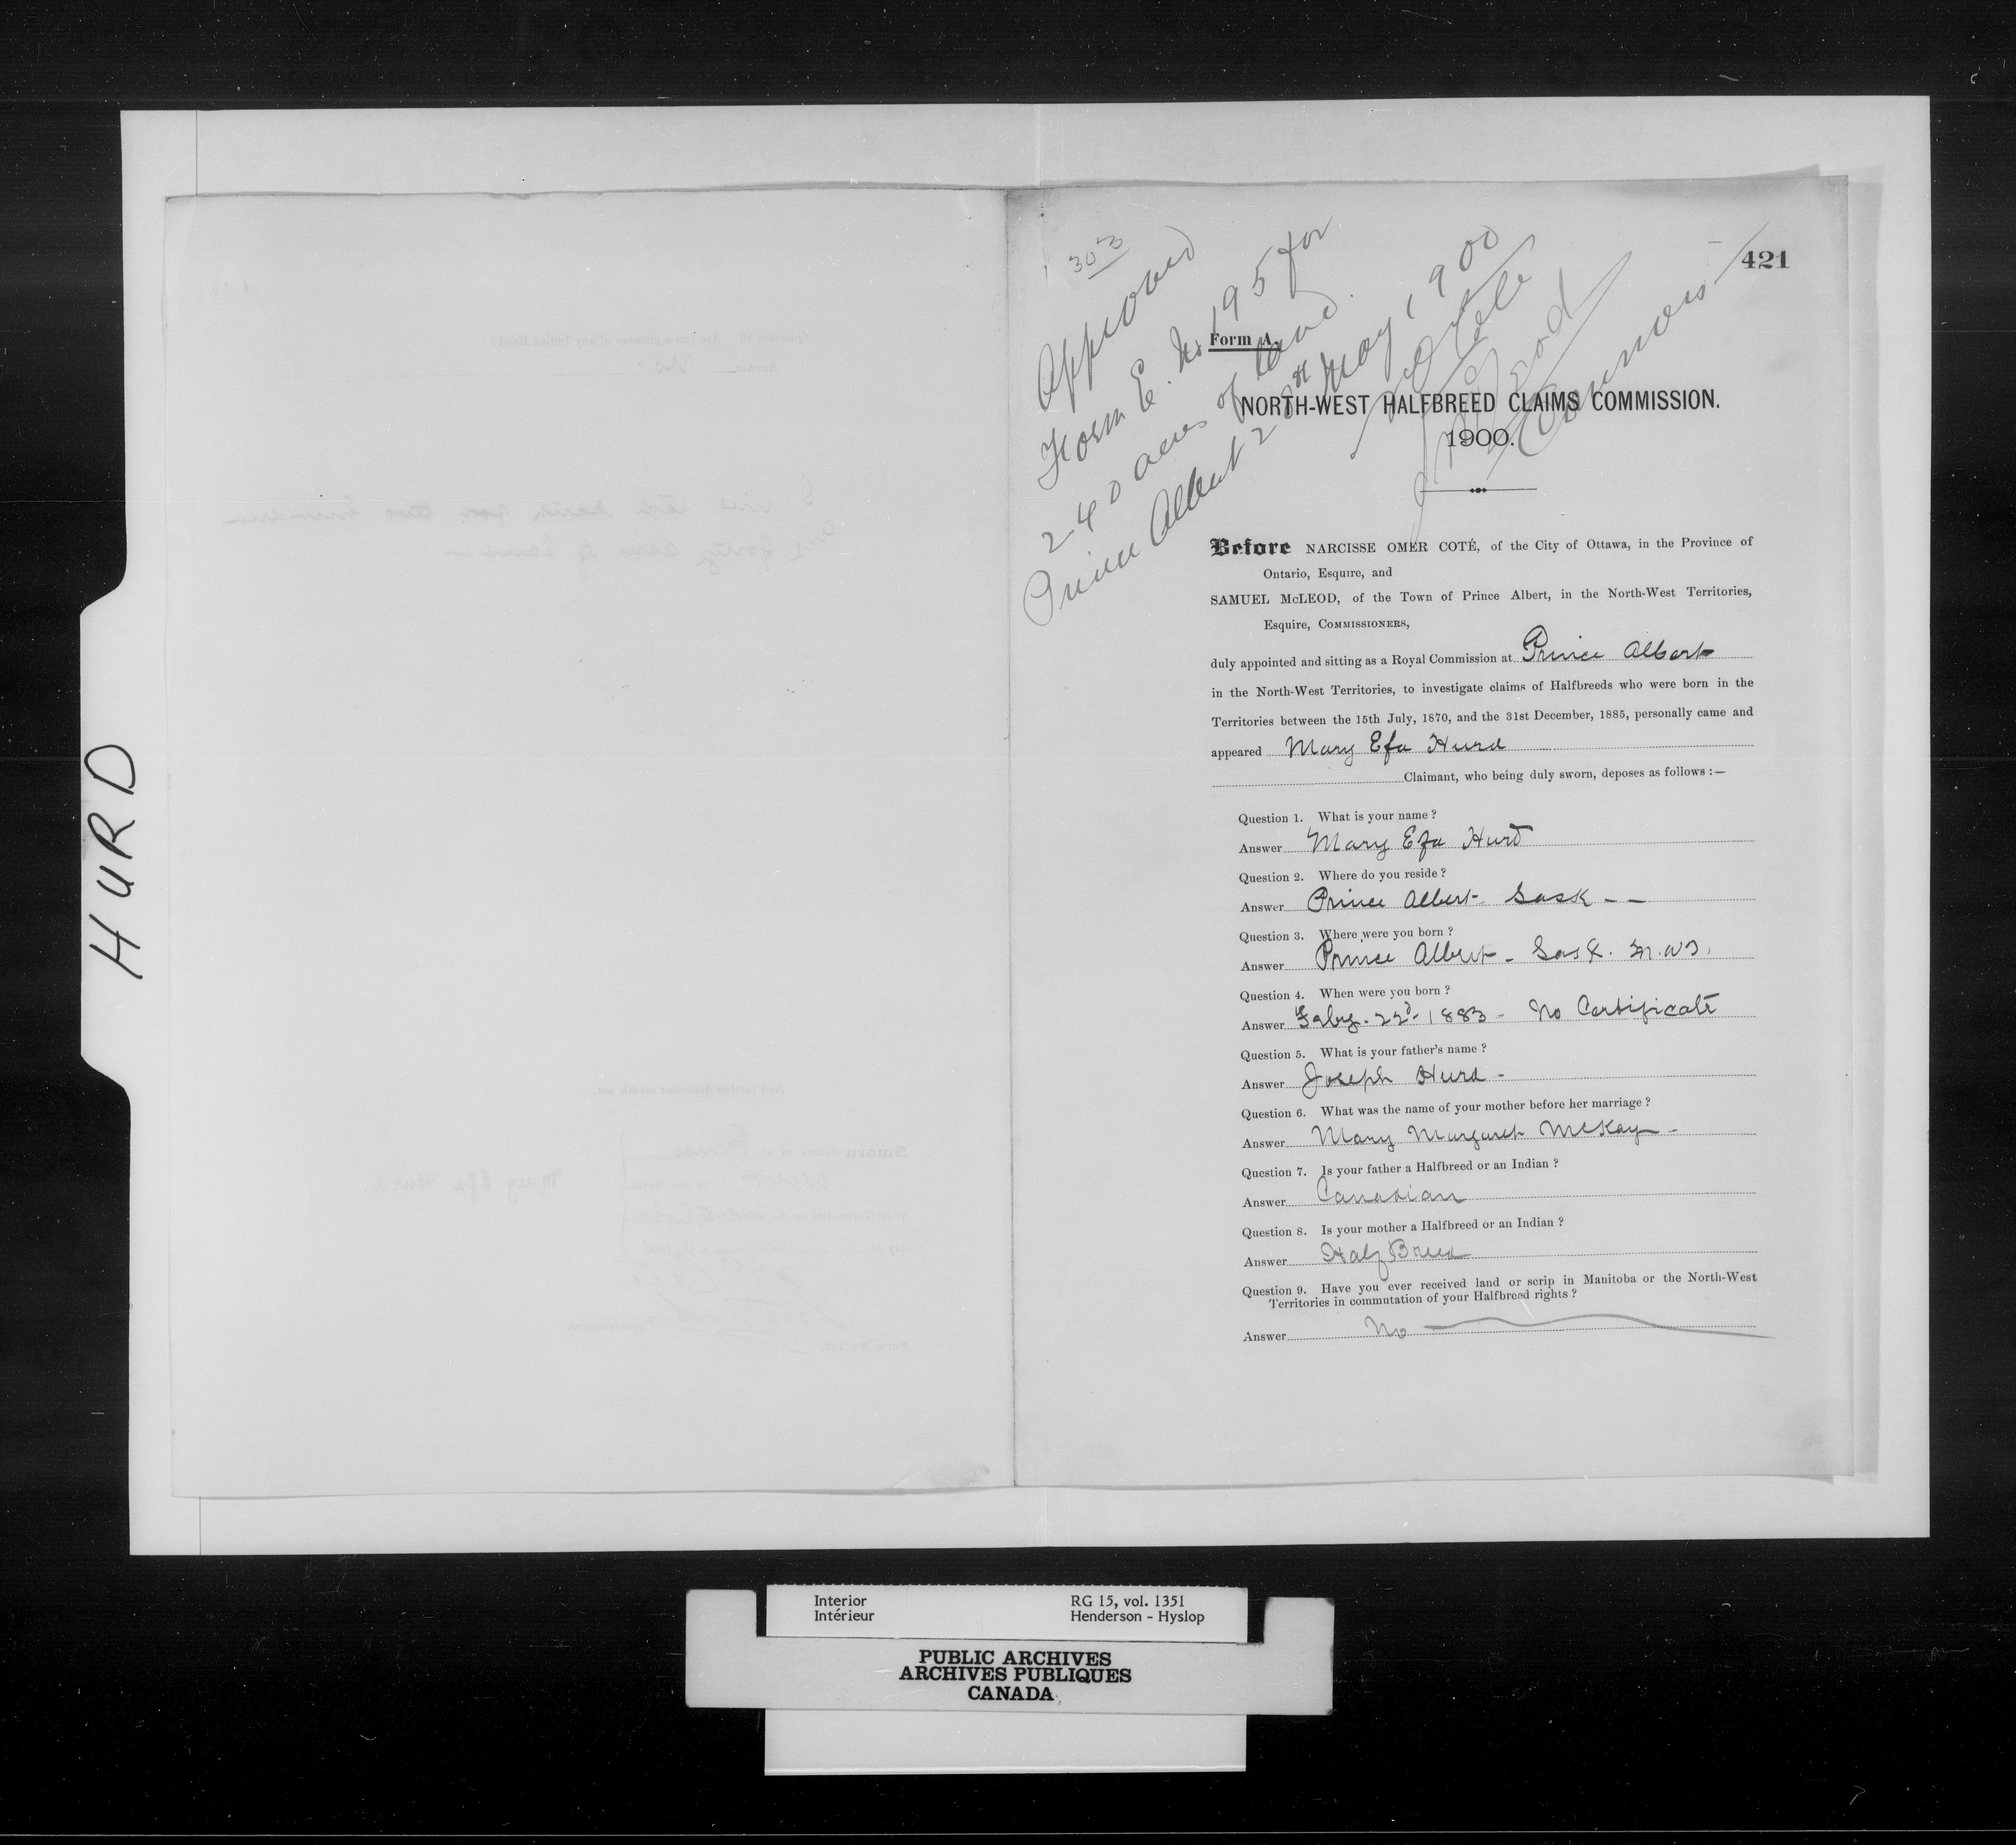 HURD
303
421
Approved
Form E. No 195 for
240 acres of land.
Prince Albert 28th May 1900
N O Coté
J McLeod
Commrs
Form A.
NORTH-WEST HALFBREED CLAIMS COMMISSION.
1900.
Before NARCISSE OMER COTÉ, of the City of Ottawa, in the Province of
Ontario, Esquire, and
SAMUEL McLEOD, of the Town of Prince Albert, in the North-West Territories,
Esquire, COMMISSIONERS,
duly appointed and sitting as a Royal Commission at Prince Albert
in the North-West Territories, to investigate claims of Halfbreeds who were born in the
Territories between the 15th July, 1870, and the 31st December, 1885, personally came and
appeared Mary Efa Hurd
Claimant, who being duly sworn, deposes as follows :—
Question 1. What is your name ?
Answer Mary Efa Hurd
Question 2. Where do you reside ?
Answer Prince Albert - Sask - -
Question 3. Where were you born ?
Answer Prince Albert - Sask. N.W.T.
Question 4. When were you born ?
Answer Feby. 22d. 1883 - No Certificate
Question 5. What is your father's name ?
Answer Joseph Hurd -
Question 6. What was the name of your mother before her marriage ?
Answer Mary Margaret McKay -
Question 7. Is your father a Halfbreed or an Indian ?
Answer Canadian
Question 8. Is your mother a Halfbreed or an Indian ?
Answer Half Breed
Question 9. Have you ever received land or scrip in Manitoba or the North-West
Territories in commutation of your Halfbreed rights ?
Answer No
Interior RG 15, vol. 1351
Intérieur Henderson - Hyslop
PUBLIC ARCHIVES
ARCHIVES PUBLIQUES
CANADA